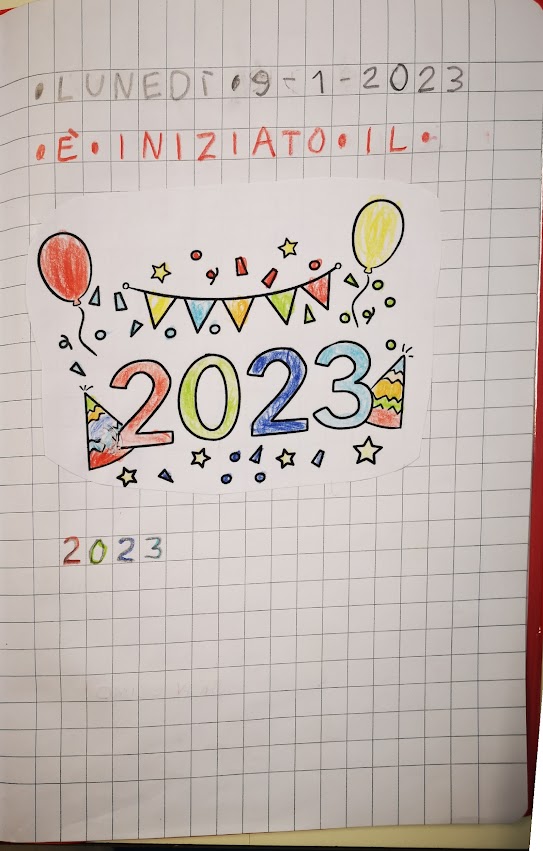 •LUNEDÌ•9-1-2023
•È•INIZIATO•IL•
2023
2023